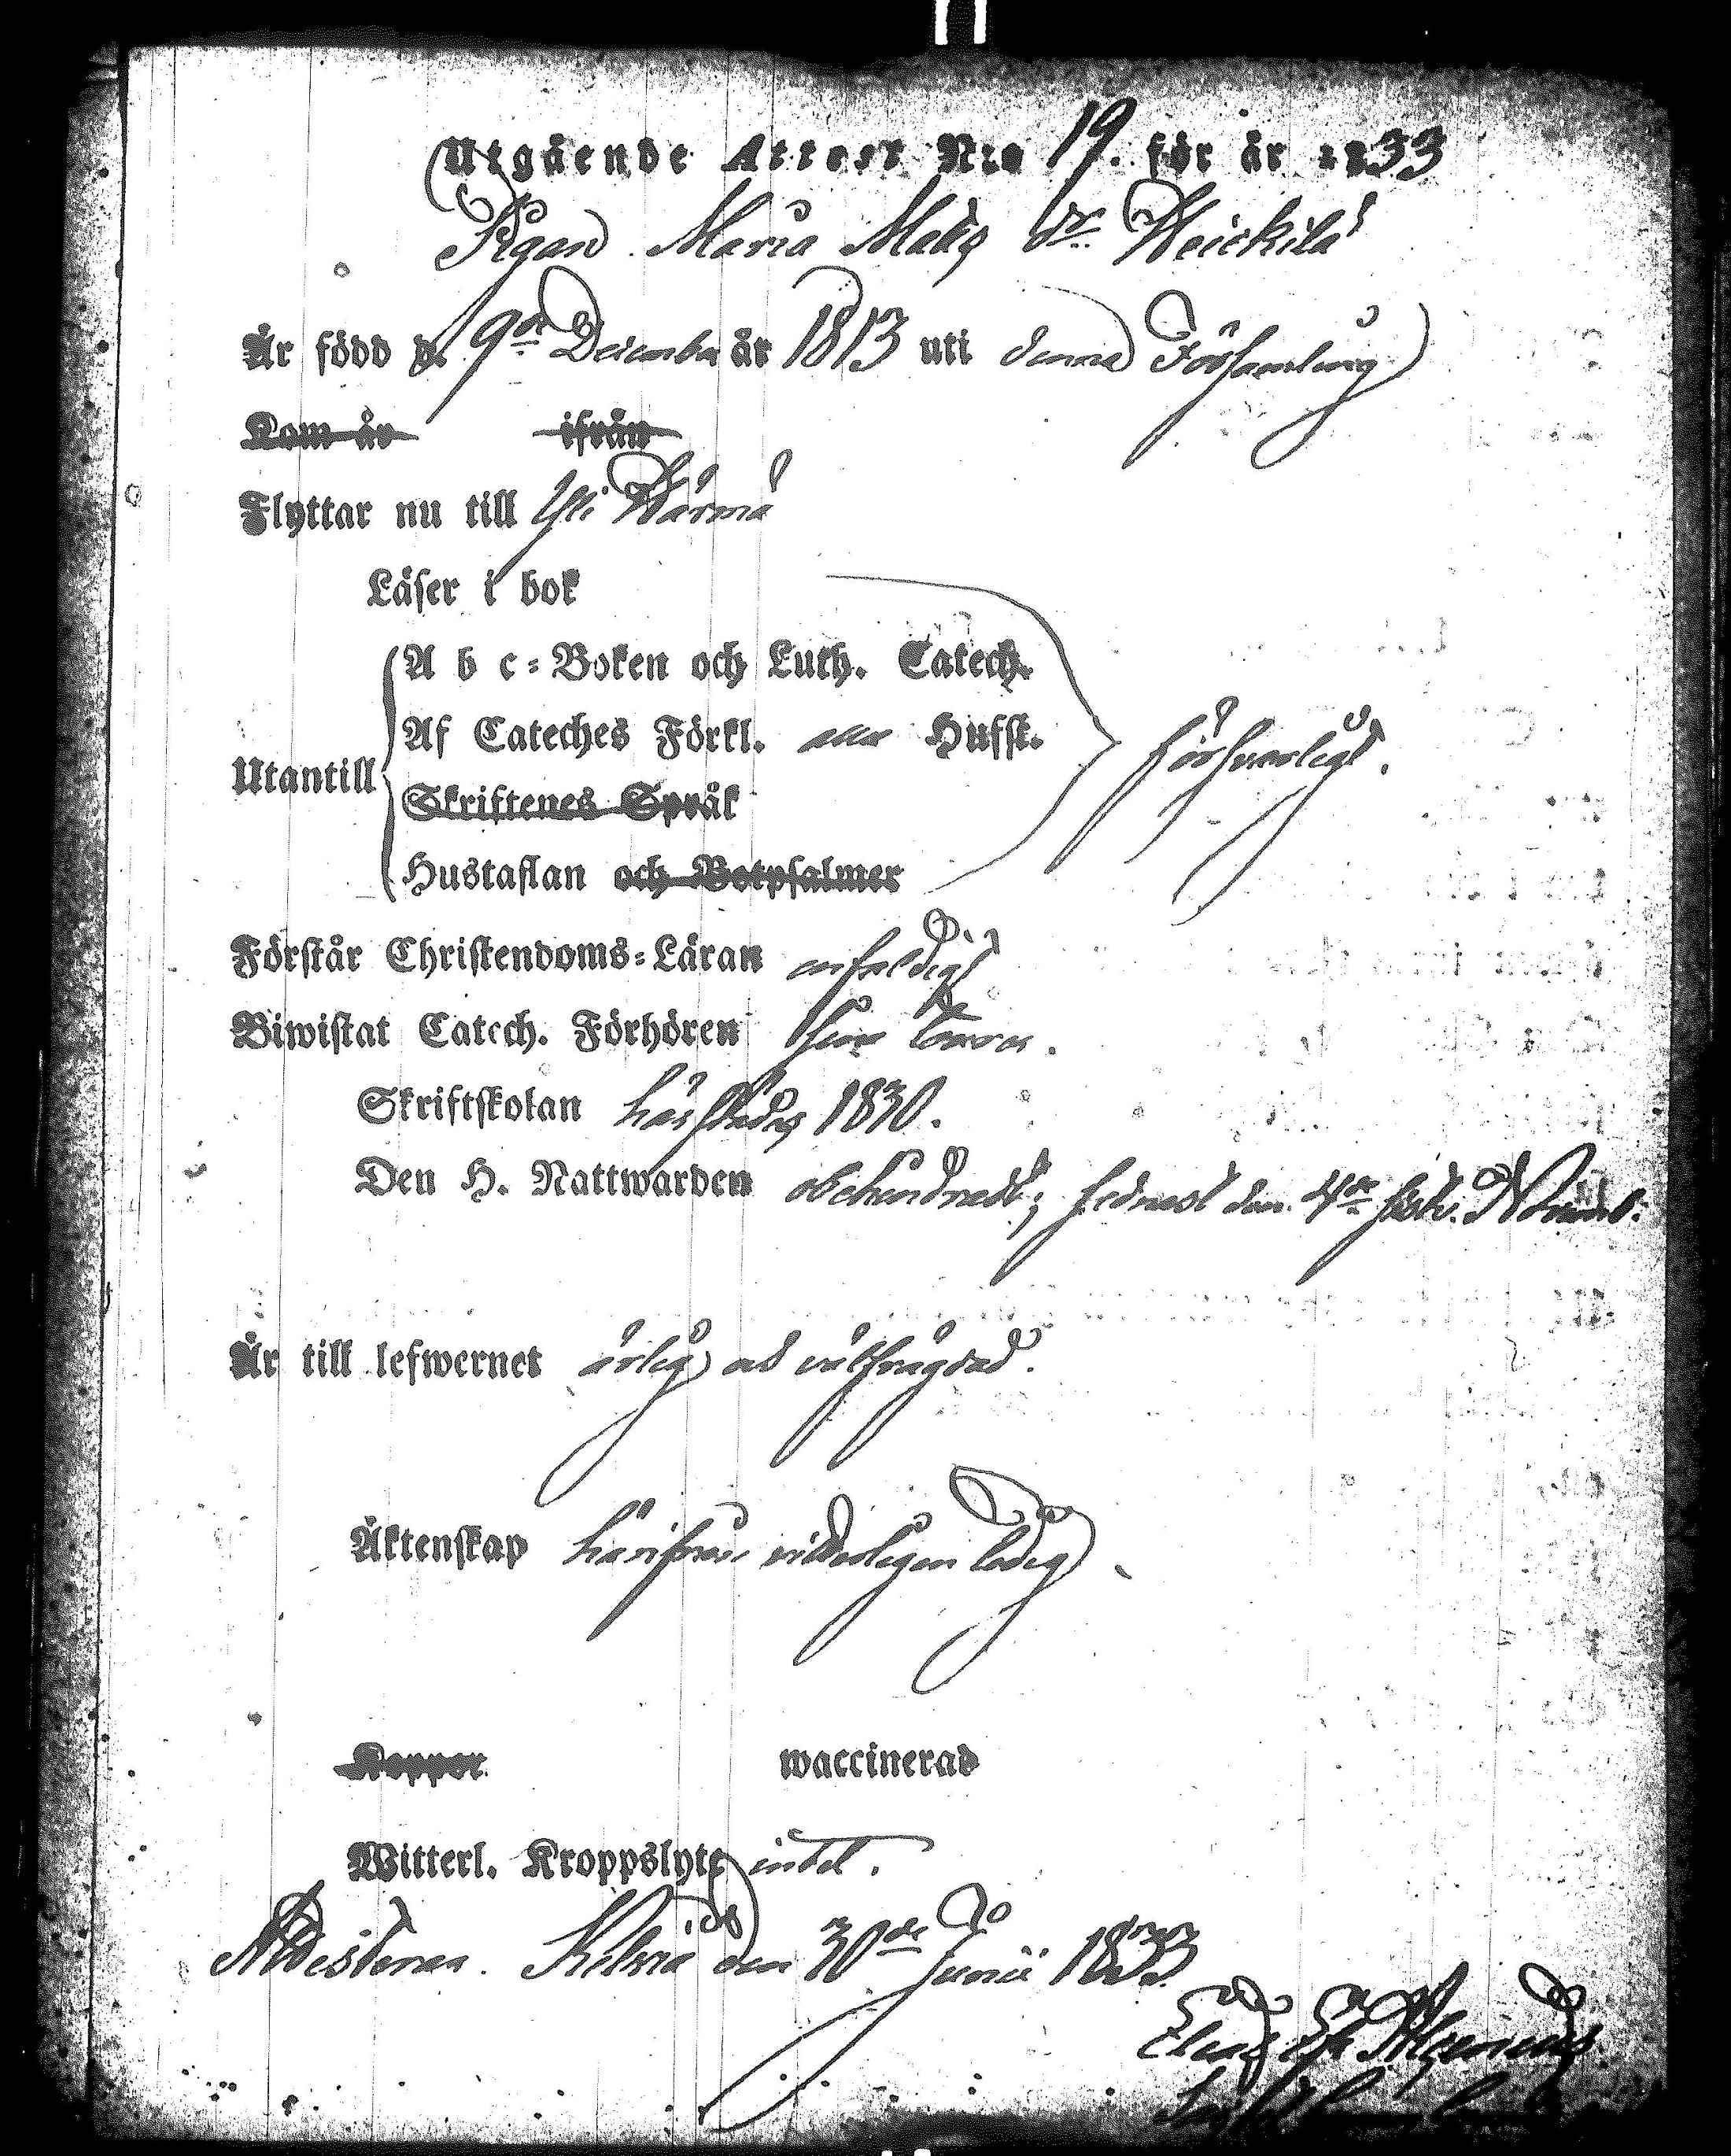 Utgående Attest N:o 19. för år 1833
Pigan Maria Mats dr Heickilä
Är född d. 9de December år 1813 uti denna Församling
Kom år ifrån
Flyttar nu till Yli Wärmä
Läser i bok
A b c-Boken och Luth. Catech.
Af Cateches Förkl. Hufst.
Utantill försvarligt.
Skriftenes Språk
Hustaflan och Botpsalmer
Förstår Christendoms-Läran enfaldigt
Biwistat Catech. Förhören sina
Skriftskolan härstädes 1830.
Den H. Nattwarden obehindradt; sednast den 4de
Är till lefwernet ärlig och välfrägdad.
Äktenskap härifrån vitterligen ledig.
Koppor waccinerad
Witterl. Kroppslyte intet.
Attesterar. Kelviå den 30de Junii 1833